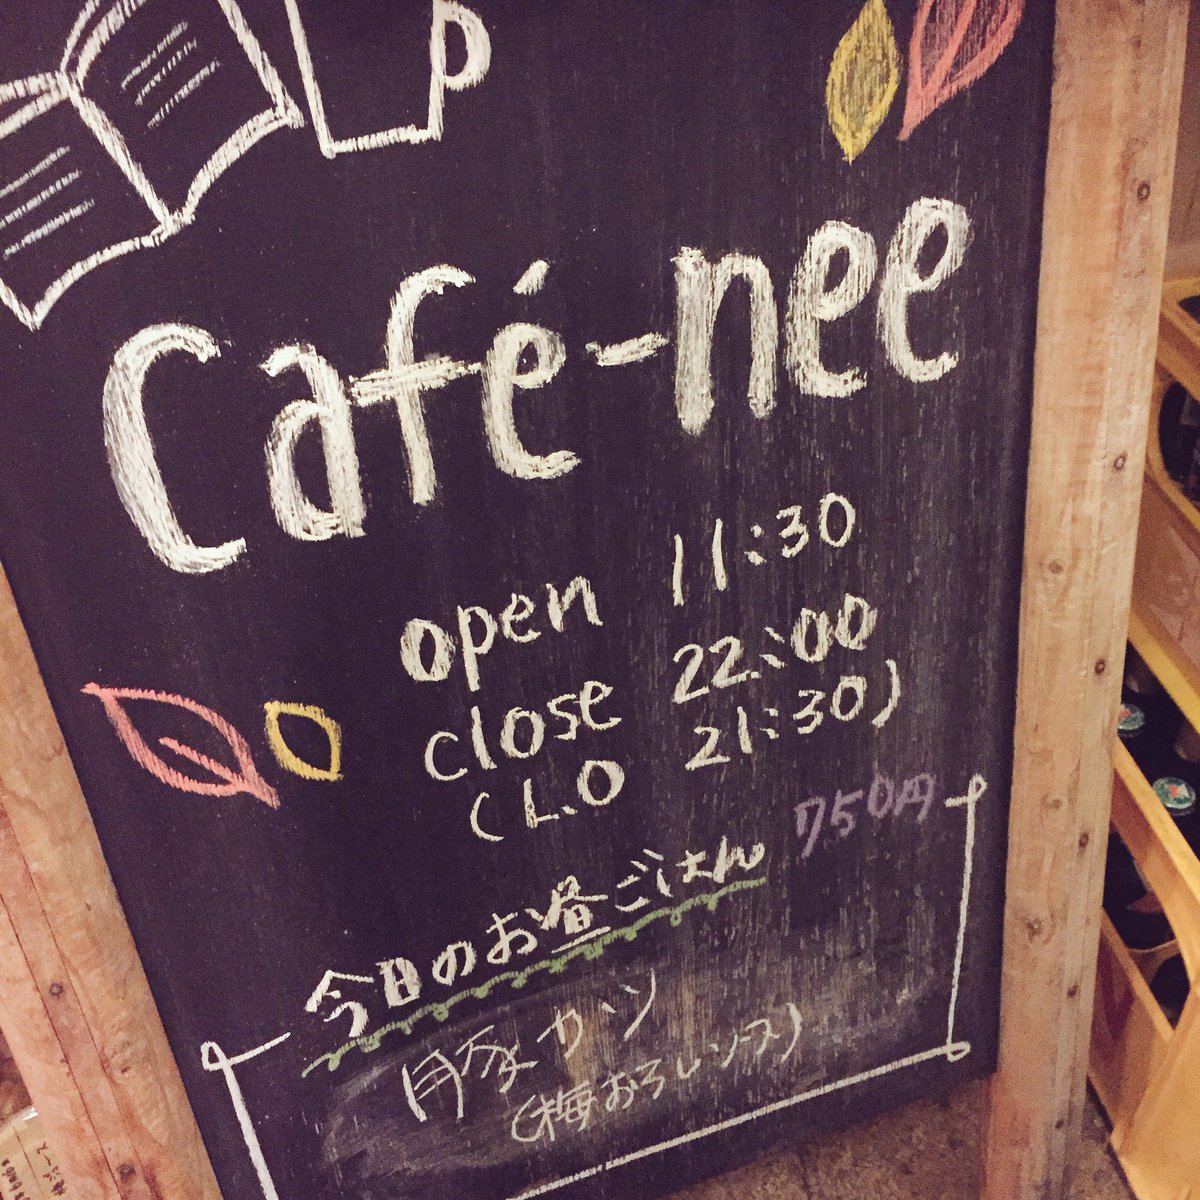 Café-nee
open 11:30
close 22:00
(L.O 21:30)
今日のお昼ごはん 750円
豚カツ
(梅おろしソース)